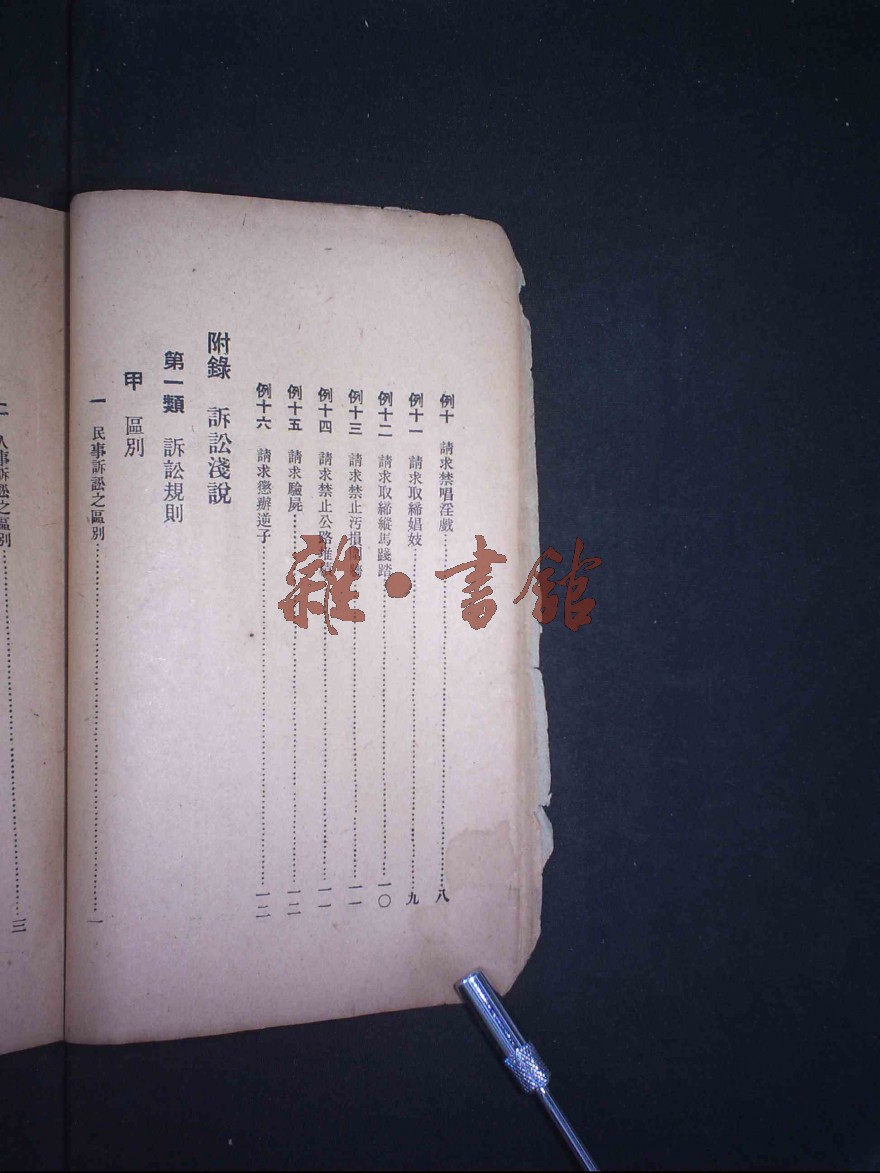 例十 請求禁唱淫戲 八
例十一 請求取締娼妓 九
例十二 請求取締縱馬踐踏 一〇
例十三 請求禁止污損 一一
例十四 請求禁止公路堆 一一
例十五 請求驗屍 一二
例十六 請求懲辦逆子 一二
附錄 訴訟淺說
第一類 訴訟規則
甲 區別
一 民事訴訟之區別 一
二 人事訴訟之區別 三
雜·書館